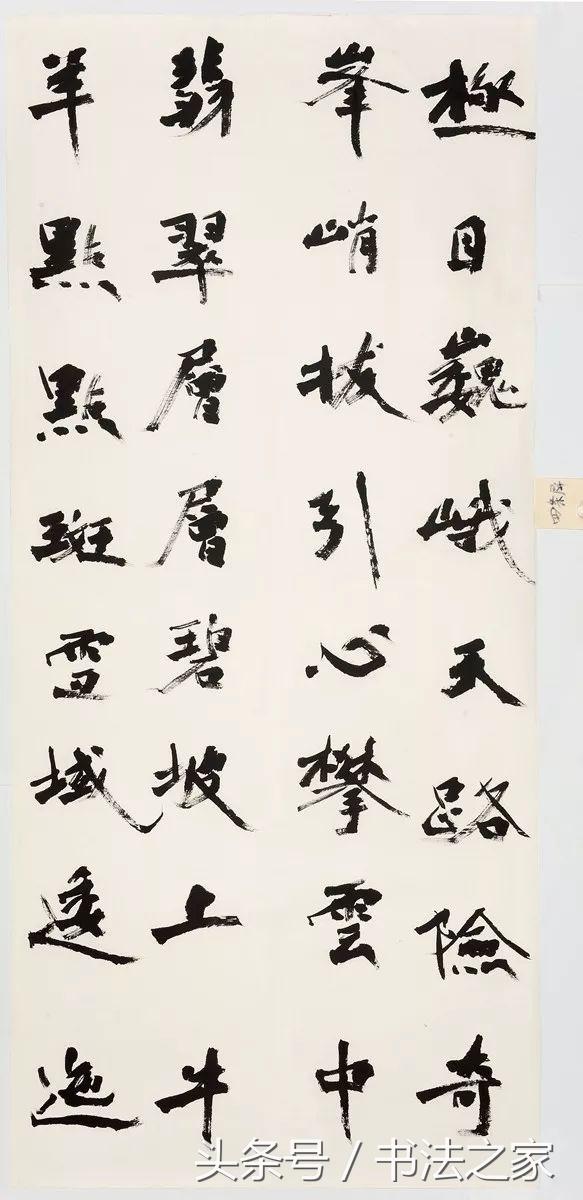 極目巍峨天路險奇
峯峭拔引心攀雲中
翡翠層層碧坡上牛
羊點點斑雪域逶迤
头条号 / 书法之家